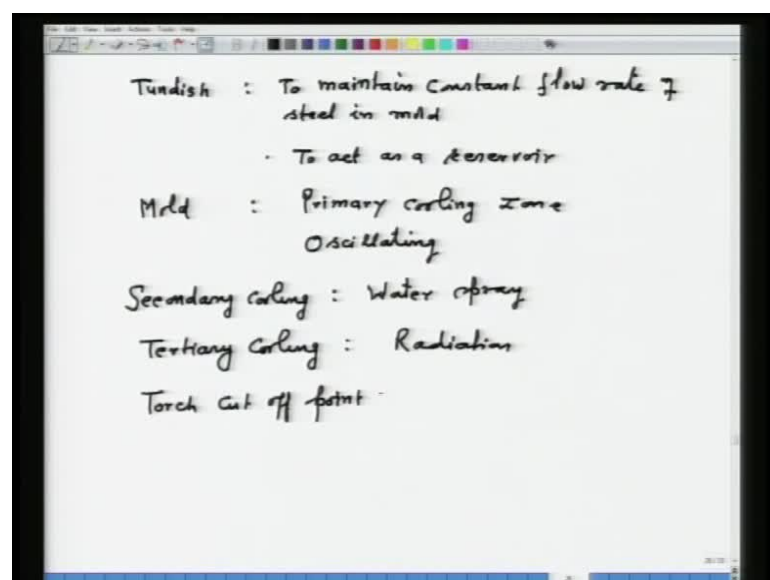 File Edit View Insert Actions Tools Help
Tundish : To maintain constant flow rate of
steel in mold
· To act as a reservoir
Mold : Primary cooling zone
Oscillating
Secondary cooling : Water spray
Tertiary cooling : Radiation
Torch cut off point